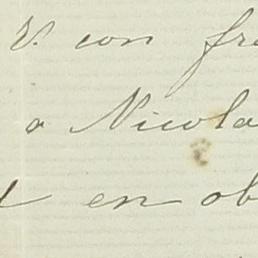 V. con fre
a Nicola
en ob